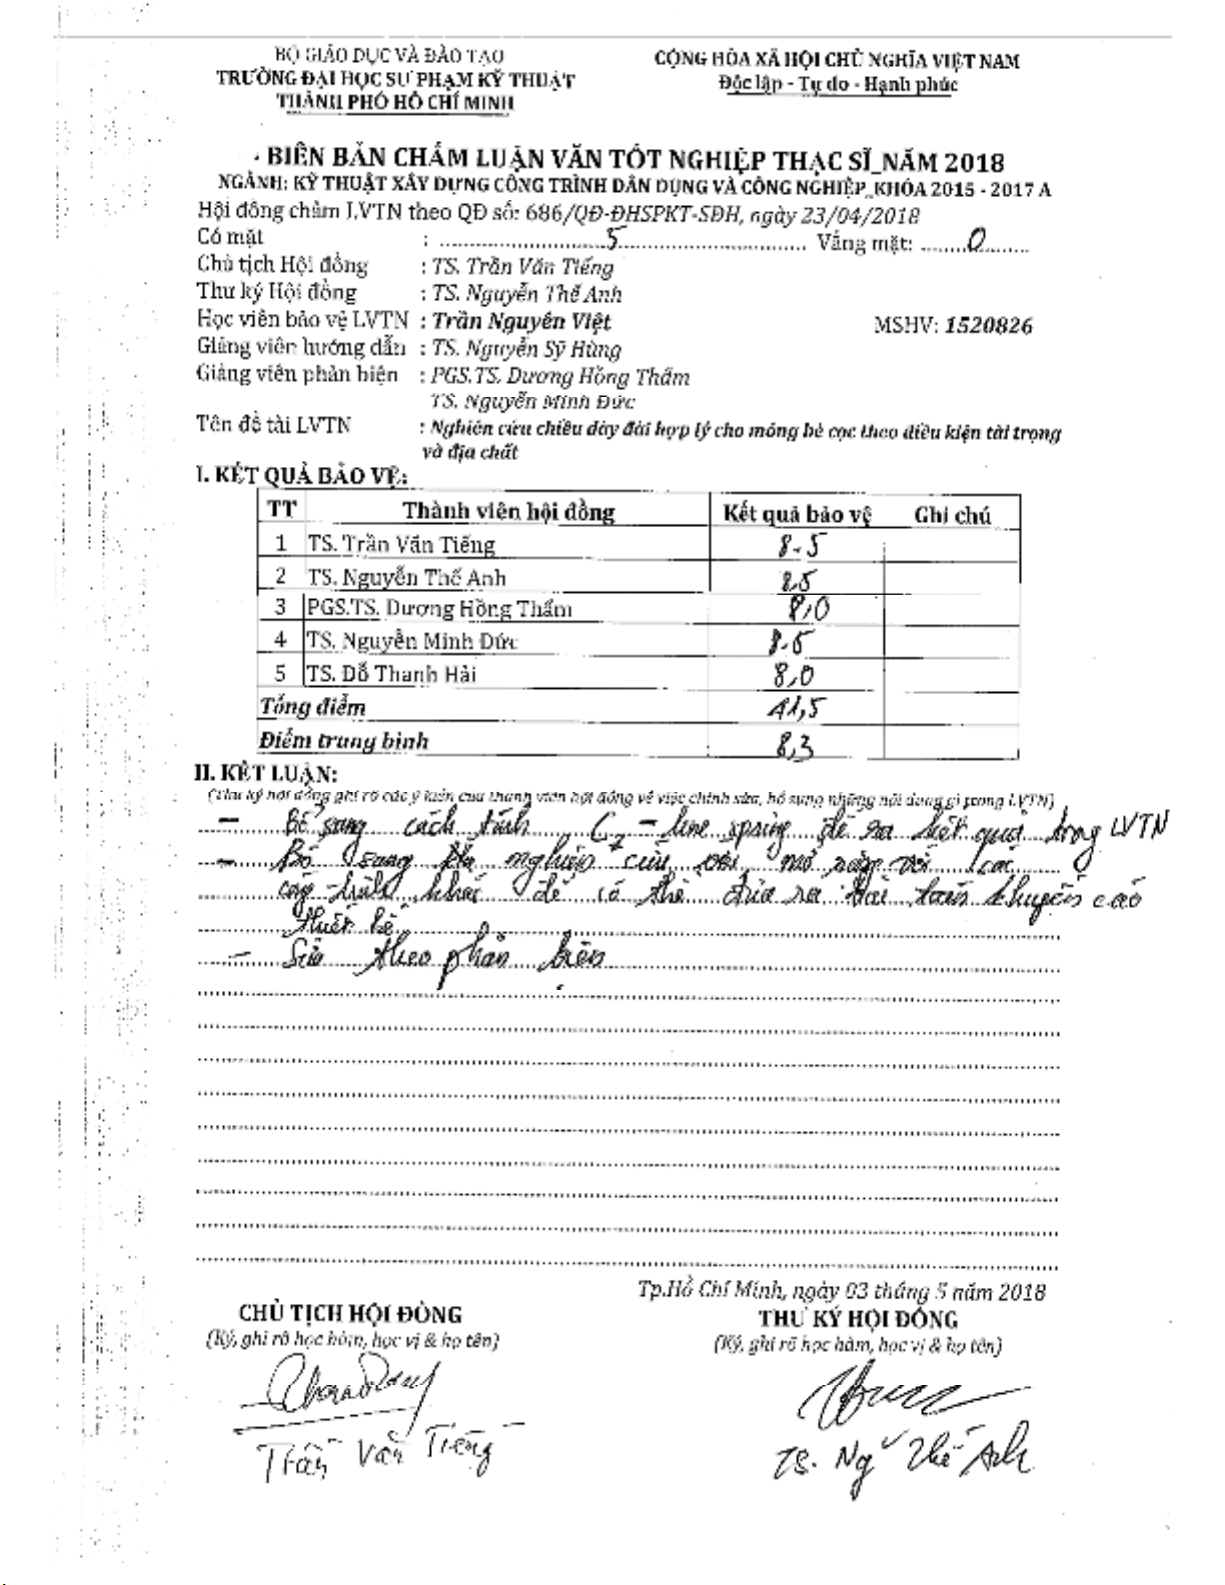 BỘ GIÁO DỤC VÀ ĐÀO TẠO
TRƯỜNG ĐẠI HỌC SƯ PHẠM KỸ THUẬT
THÀNH PHỐ HỒ CHÍ MINH
CỘNG HÒA XÃ HỘI CHỦ NGHĨA VIỆT NAM
Độc lập - Tự do - Hạnh phúc
BIÊN BẢN CHẤM LUẬN VĂN TỐT NGHIỆP THẠC SĨ_NĂM 2018
NGÀNH: KỸ THUẬT XÂY DỰNG CÔNG TRÌNH DÂN DỤNG VÀ CÔNG NGHIỆP_KHÓA 2015 - 2017 A
Hội đồng chấm LVTN theo QĐ số: 686/QĐ-ĐHSPKT-SĐH, ngày 23/04/2018
Có mặt : 5 Vắng mặt: 0
Chủ tịch Hội đồng : TS. Trần Văn Tiếng
Thư ký Hội đồng : TS. Nguyễn Thế Anh
Học viên bảo vệ LVTN : Trần Nguyên Việt MSHV: 1520826
Giảng viên hướng dẫn : TS. Nguyễn Sỹ Hùng
Giảng viên phản biện : PGS.TS. Dương Hồng Thẩm
TS. Nguyễn Minh Đức
Tên đề tài LVTN : Nghiên cứu chiều dày đài hợp lý cho móng bè cọc theo điều kiện tải trọng
và địa chất
I. KẾT QUẢ BẢO VỆ:
TT Thành viên hội đồng Kết quả bảo vệ Ghi chú
1 TS. Trần Văn Tiếng 8.5
2 TS. Nguyễn Thế Anh 8,5
3 PGS.TS. Dương Hồng Thẩm 8,0
4 TS. Nguyễn Minh Đức 8.5
5 TS. Đỗ Thanh Hải 8,0
Tổng điểm 41,5
Điểm trung bình 8,3
II. KẾT LUẬN:
(Thư ký hội đồng ghi rõ các ý kiến của thành viên hội đồng về việc chỉnh sửa, bổ sung những nội dung gì trong LVTN)
- Bổ sung cách tính Cz - line spring để ra kết quả trong LVTN
- Bổ sung nghiên cứu mở rộng với các
công trình khác để có thể đưa ra khuyến cáo
thiết kế
- Sửa theo phản biện
Tp.Hồ Chí Minh, ngày 03 tháng 5 năm 2018
CHỦ TỊCH HỘI ĐỒNG
(Ký, ghi rõ học hàm, học vị & họ tên)
Trần Văn Tiếng
THƯ KÝ HỘI ĐỒNG
(Ký, ghi rõ học hàm, học vị & họ tên)
TS. Ng Thế Anh